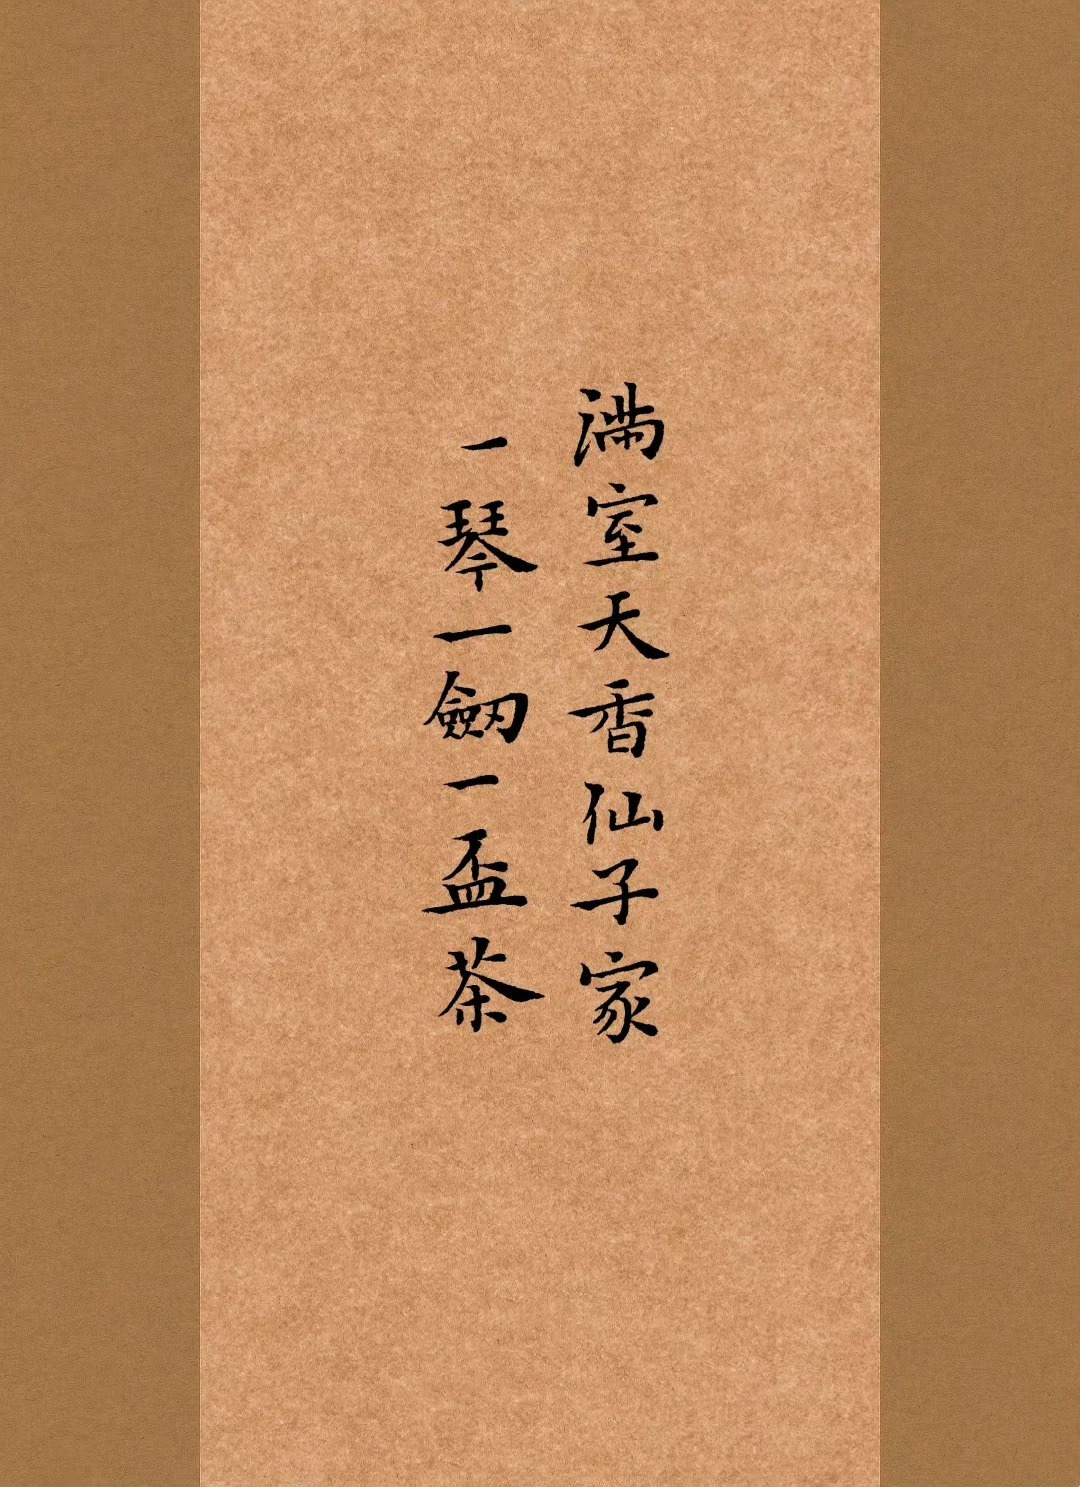 満室天香仙子家
一琴一劔一盃茶